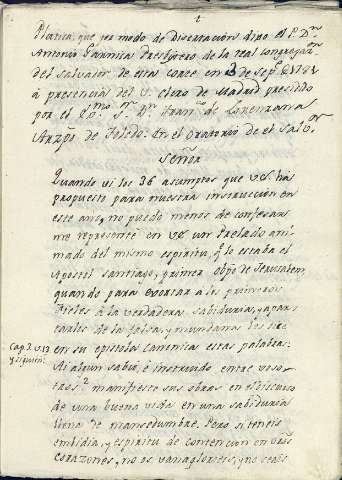 1
Platica, que por modo de Disertación dixo el P. Dn.
Antonio Garnica Presbytero de la real congregazon.
del salvador de esta corte en 3 de Sepe. de 1781
à presencia del V. Clero de Madrid presidido
por el Exmo. Sr. Dn. Franco. de Lorenzana
Arzpo. de Toledo. En el Oratorio de el Salvor.
Señor
Quando vi los 36 asumptos que V.E. ha
propuesto para nuestra instruccion en
este año, no puedo menos de confesar
me represente en V.E. un Prelado ani
mado del mismo espiritu, q. lo estaba el
Apostol santiago, primer obpo de Jerusalem,
quando para exortar a los primeros
fieles a la verdadera sabiduria, y apar
tarlos de la falsa, y mundana les dixo
Cap. 3. v. 13
y siguien.
en su epistola Canonica estas palabras:
Ai algun sabio, è instruido entre voso
tros? manifieste sus obras en el exercicio
de una buena vida en una sabiduria
llena de mansedumbre. Pero si teneis
embidia, y espiritu de contencion en vros
corazones, no os vanaglorieis, y no seais